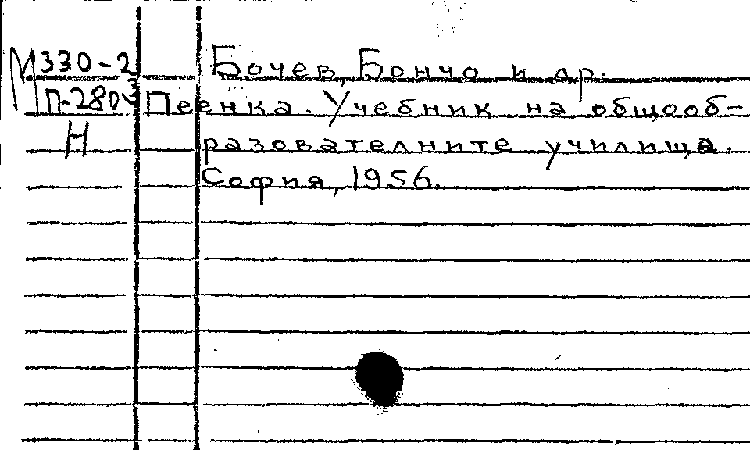 М 330-2 Бочев, Бончо и др.
П-280 Пеенка. Учебник на общооб-
Н разователните училища.
София, 1956.